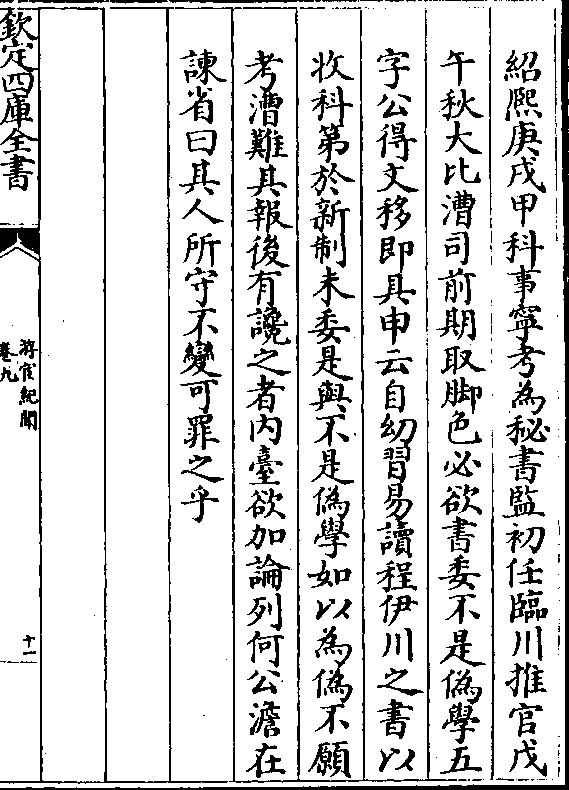 紹熙庚戌甲科事寧考為秘書監初任臨川推官戊
午秋大比漕司前期取脚色必欲書委不是偽學五
字公得文移即具申云自幼習易讀程伊川之書以
收科第於新制未委是與不是偽學如以為偽不願
考漕難其報後有讒之者内臺欲加論列何公澹在
諫省曰其人所守不變可罪之乎
欽定四庫全書
游宦紀聞
卷九
十一